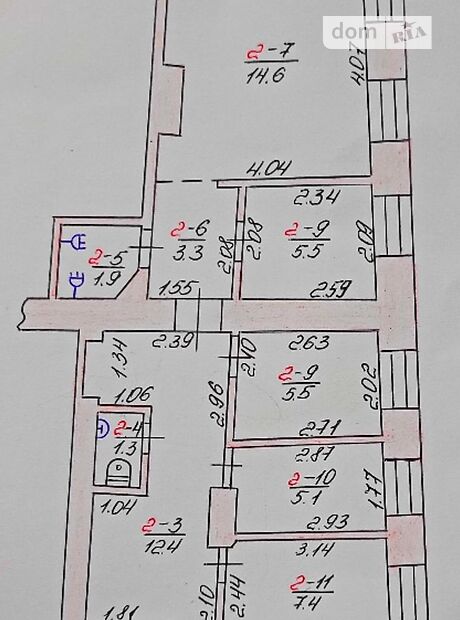 dom RIA
2-7
14.6
4.07
4.04
2-6
3.3
2.08
2.08
2.34
2-9
5.5
2.09
2-5
1.9
1.55
2.59
2.39
1.34
2.10
2.63
2-9
5.5
2.02
1.06
2.96
2-4
1.3
2.71
2.87
2-10
5.1
1.77
1.04
2-3
12.4
2.93
3.14
2-11
7.4
2.10
2.44
1.81